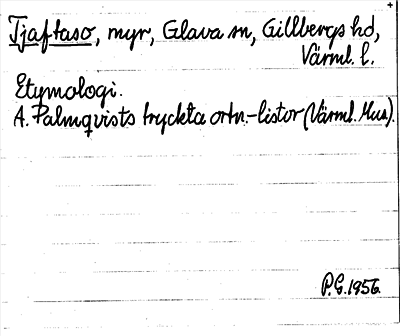 Tjaftaso, myr, Glava sn, Gillbergs hd,
Värml. l.
Etymologi.
A. Palmqvists tryckta ortn.-listor (Värml. Mus).
P.G. 1956.